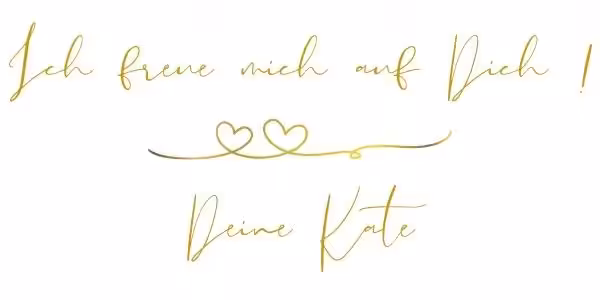 Ich freue mich auf Dich !
Deine Kate